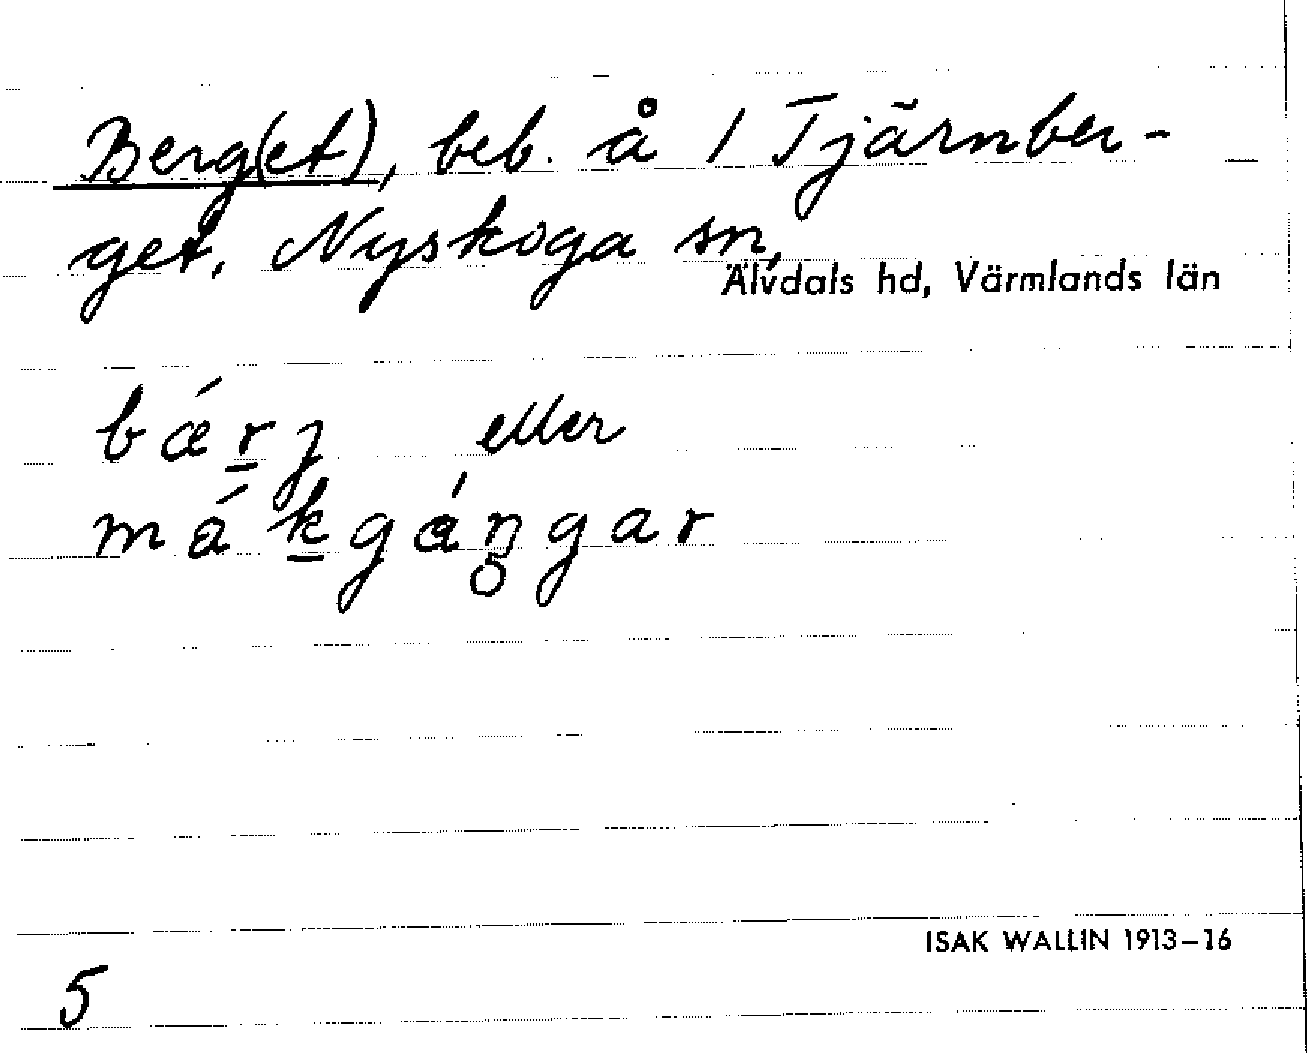 Berg(et), beb. å 1 Tjärnber-
get, Nyskoga sn,
Älvdals hd, Värmlands län
bǽr̲ʒ eller
mák̲gáŋ̥gar
ISAK WALLIN 1913–16
5